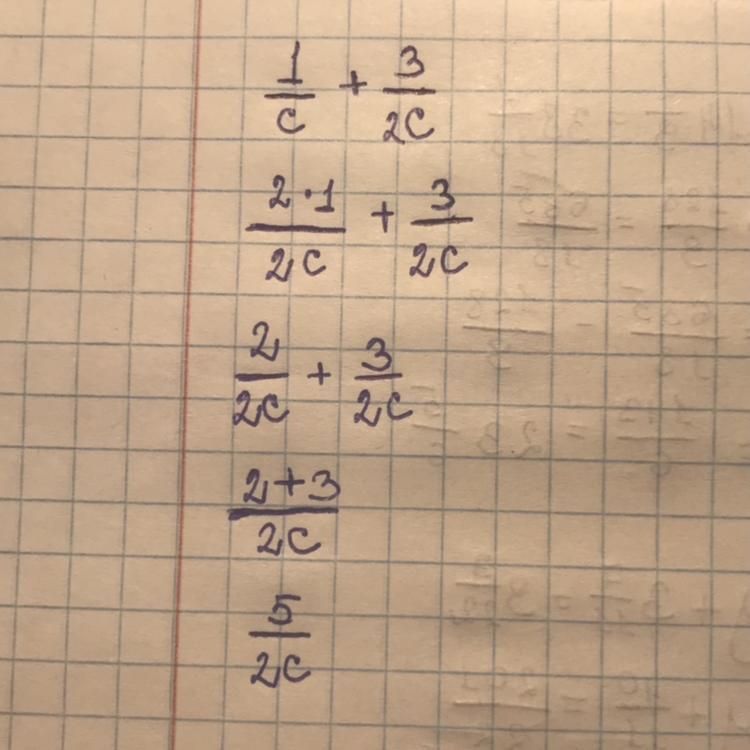 1/c + 3/2c
2·1/2c + 3/2c
2/2c + 3/2c
2+3/2c
5/2c